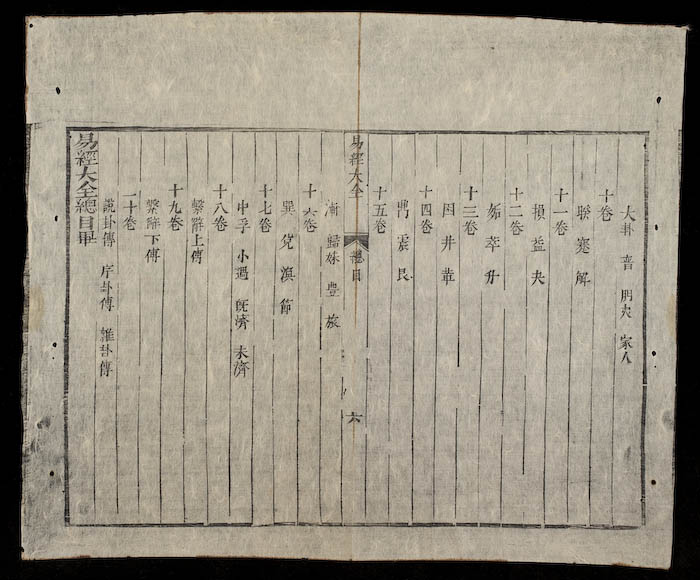 大壯 晉 明夷 家人
十卷
睽 蹇 解
十一卷
損 益 夬
十二卷
姤 萃 升
十三卷
困 井 革
十四卷
鼎 震 艮
十五卷
易經大全 總目 六
漸 歸妹 豊 旅
十六卷
巽 兌 渙 節
十七卷
中孚 小過 既濟 未濟
十八卷
繫辭上傳
十九卷
繫辭下傳
二十卷
說卦傳 序卦傳 雜卦傳
易經大全總目畢